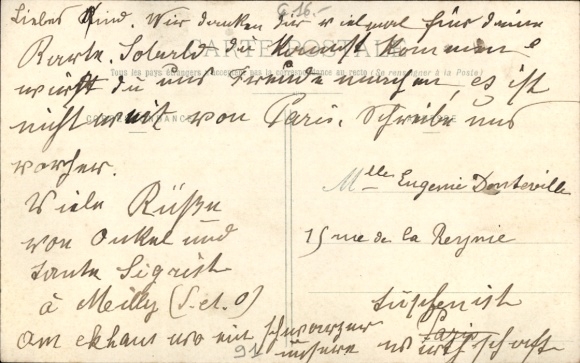 Liebes Kind. Wir danken dir vielmal für deine
Karte. Sobald du kannst kommen
CARTE POSTALE
Tous les pays étrangers n'acceptent pas la correspondance au recto (Se renseigner à la Poste)
würst du uns Freude machen, es ist
nicht weit von Paris. Schreibe uns
CORRESPONDANCE
vorher.
Viele Küße
von Onkel und
tante Sigrist
à Meilly (S. et. O)
am ekhaus wo ein schwarzer
unsere wirtschaft
Mlle Eugenie Donteville
15 rue de la Reynie
Paris
G 16.-
91